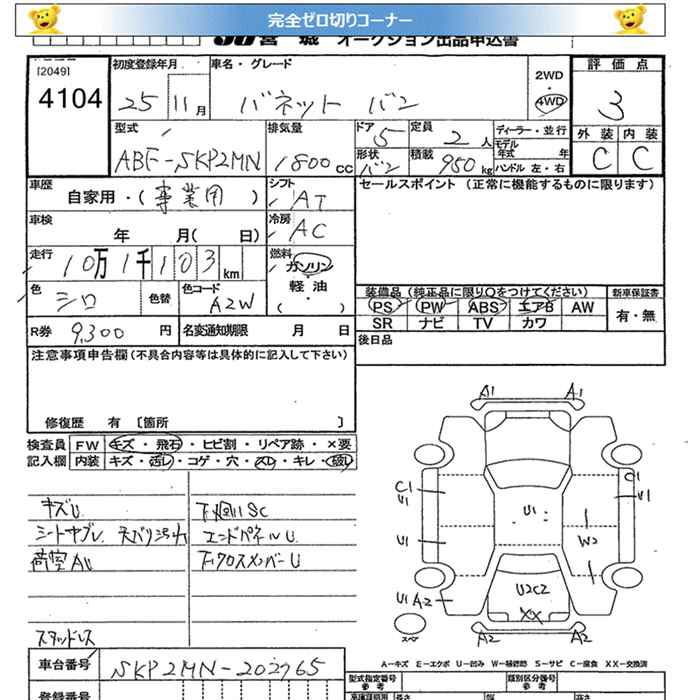 完全ゼロ切りコーナー
JU 宮 城 オークション出品申込書
[2049] 初度登録年月 車名・グレード 2WD 4WD 評価点
4104 25 11月 バネット バン 3
型式 排気量 ドア 定員 ディーラー・並行 外装 内装
ABF-SKP2MN 1800cc 5 2人 モデル年式 年 C C
形状 積載 ハンドル 左・右
バン 950kg
車歴 自家用・(事業用) シフト AT セールスポイント (正常に機能するものに限ります)
車検 年 月( 日) 冷房 AC
走行 10万1千103km 燃料 ガソリン
軽・油
( )
色 シロ 色替 色コード A2W 装備品 (純正品に限り○をつけてください) 新車保証書
PS PW ABS エアB AW 有・無
SR ナビ TV カワ
R券 9,300円 名変通知期限 月 日
後日品
注意事項申告欄(不具合内容等は具体的に記入して下さい)
修復歴 有 [箇所 ]
検査員 FW キズ・飛石・ヒビ割・リペア跡・×要
記入欄 内装 キズ・汚レ・コゲ・穴・スレ・キレ・破レ
キズU 下廻りSC
シートヤブレ 天バリ汚れ エンドパネルU
荷室AU 下クロスメンバーU
スタッドレス
A1 A1
C1 U1 C1 U1
U1 U1 W2
U1 A2 U2C2
XX
スペア A2 A2
A−キズ E−エクボ U−凹み W−補修跡 S−サビ C−腐食 XX−交換済
車台番号 SKP2MN-202765
型式指定番号 参考 類別区分番号 参考
登録番号 長さ 幅 高さ